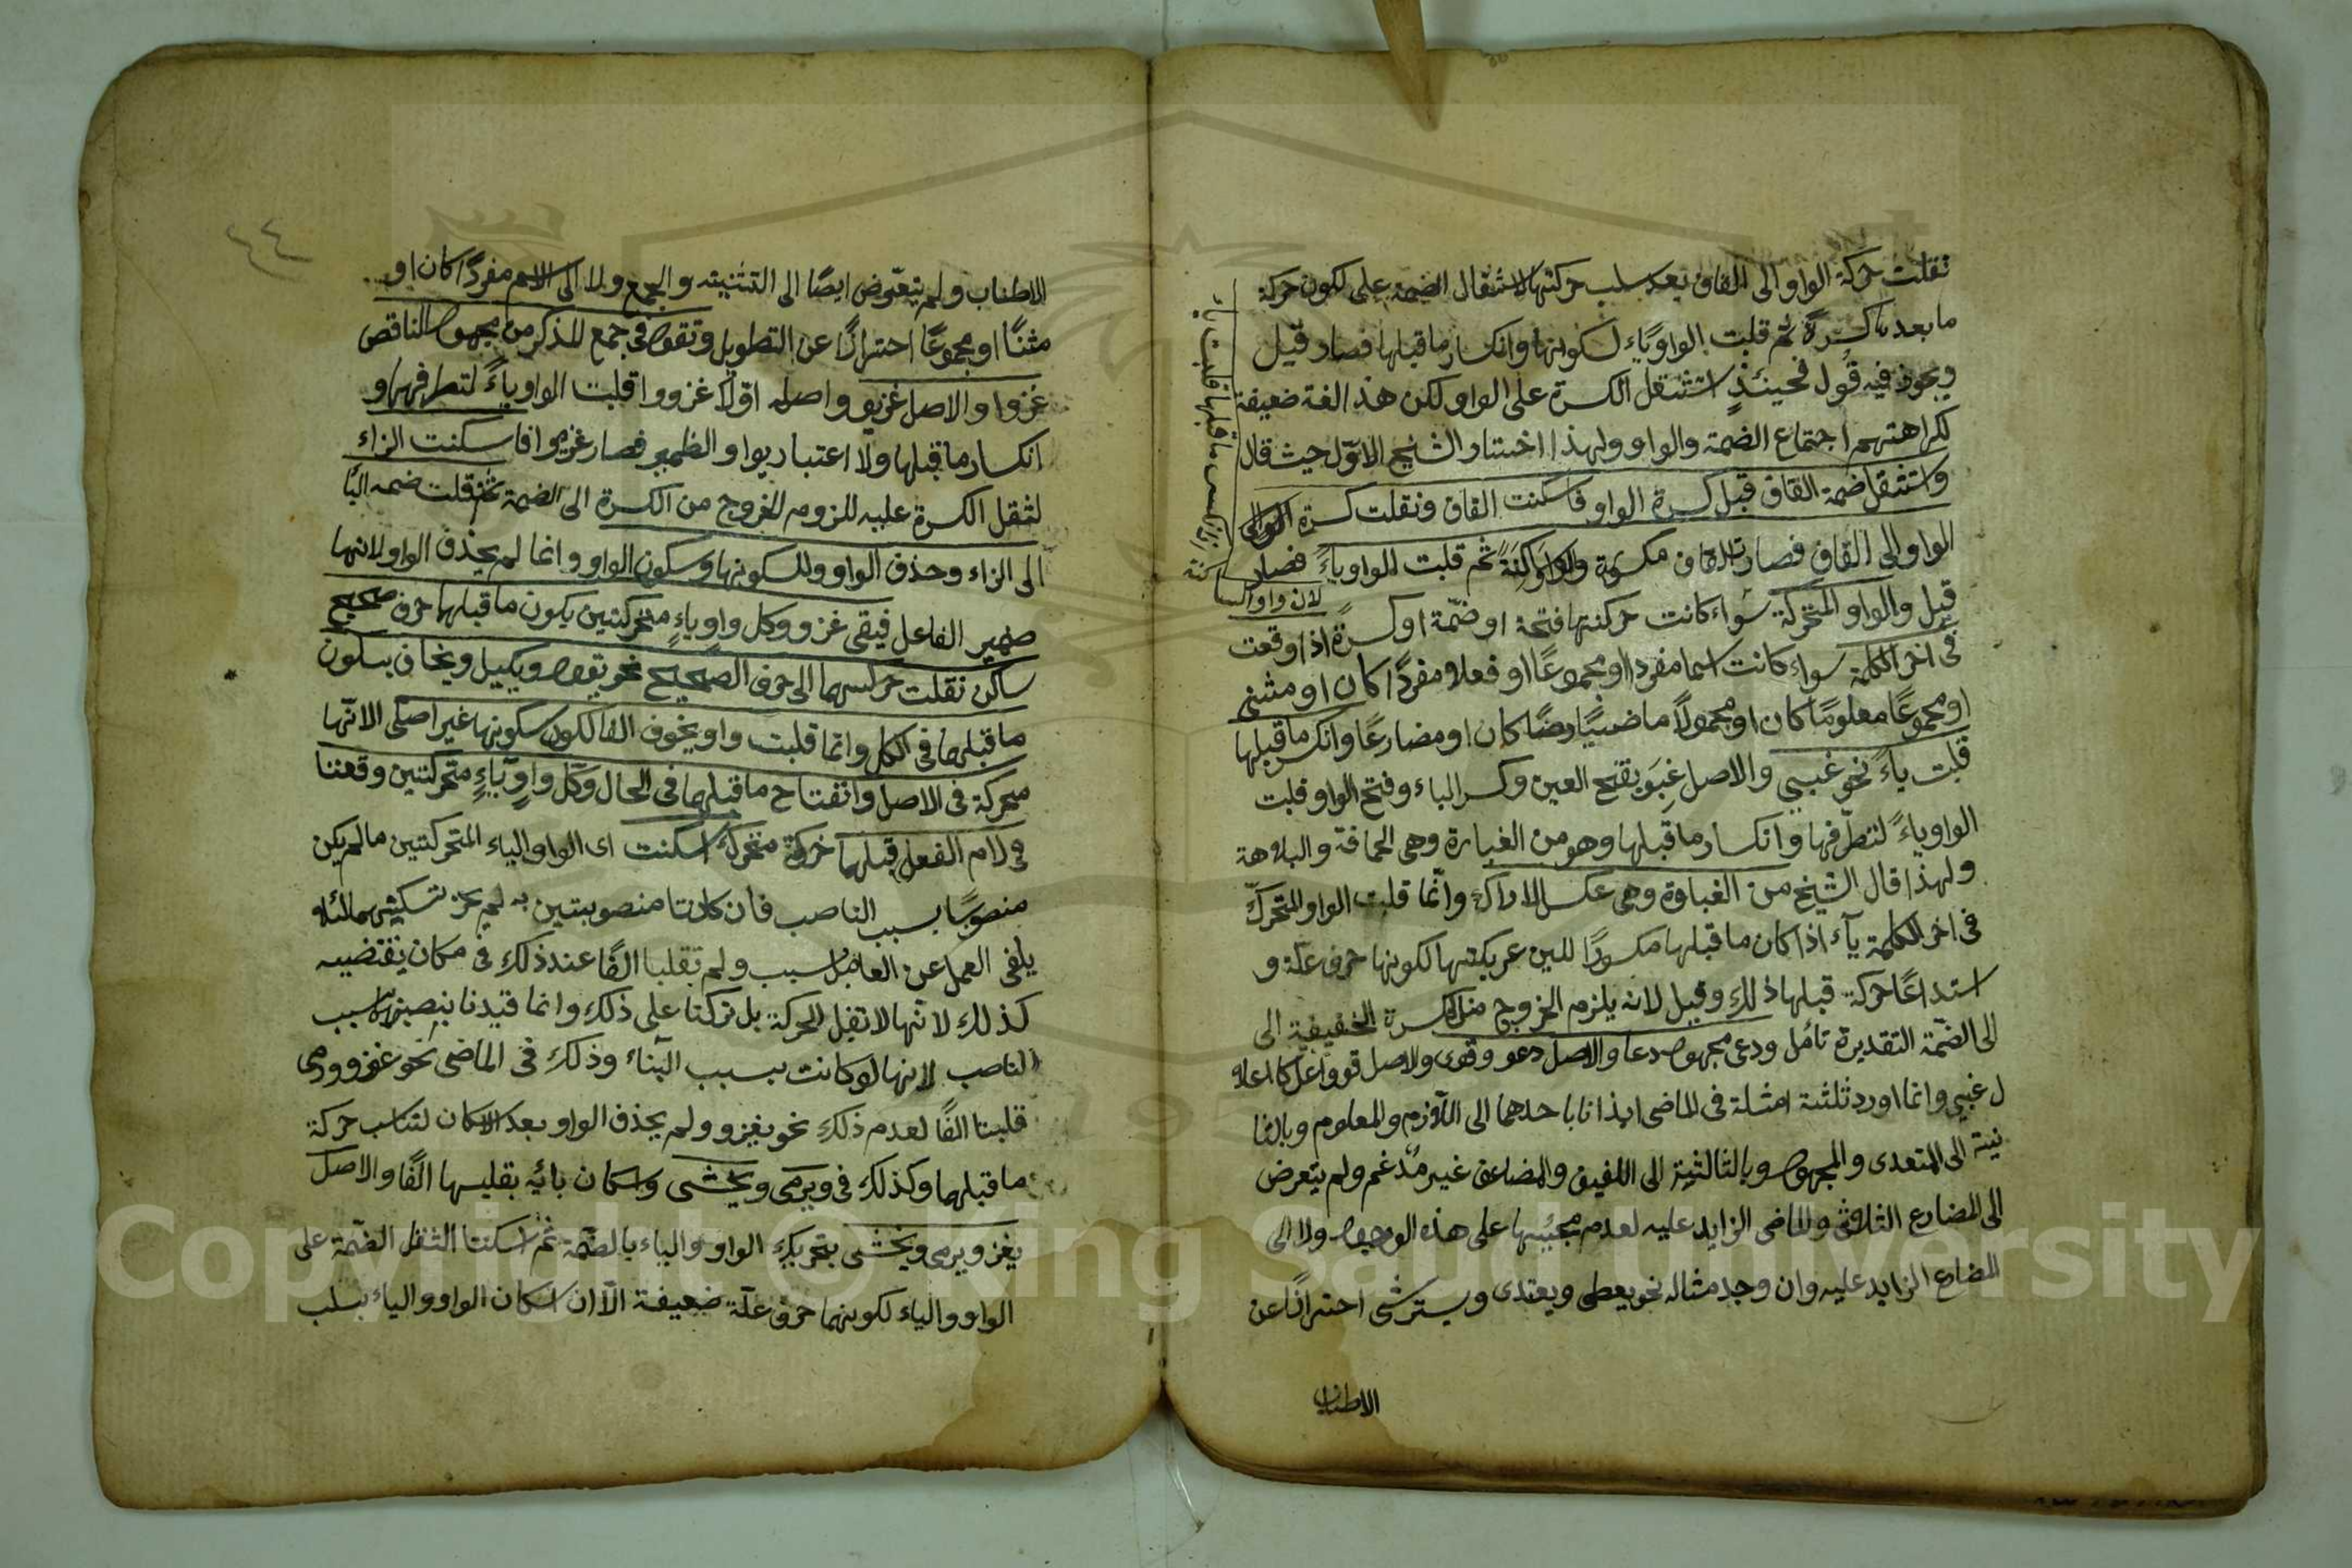 نقلت حركة الواو الى القاف بعد سلب حركتها لاستثقال الضمة على لكون حركة
ما بعدها كسرة ثم قلبت الواو ياء لسكونها وانكسار ما قبلها فصار قيل
ويجوز فيه قُول فحينئذٍ استثقل الكسرة على الواو لكن هذا لغة ضعيفة
لكراهتهم اجتماع الضمة والواو ولهذا اختار الشيخ الاوّل حيث قال
واستثقل ضمة القاف قبل كسرة الواو فاسكنت القاف ونقلت كسرة
الواو الى القاف فصارت القاف مكسورة والواو ساكنة ثم قلبت الواو ياءً فصار
قيل والواو المتحركة سواء كانت حركتها فتحة او ضمّة او كسرةً اذا وقعت
فى اخر الكلمة سواء كانت اسما مفردا او مجموعًا او فعلا مفردًا كان او مثنى
او مجموعًا معلومًا كان او مجهولاً ماضيًا كان او مضارعًا وانكسر ما قبلها
قلبت ياءً نحو غبى والاصل غَبِوَ بفتح الغين وكسر الباء وفتح الواو قلبت
الواو ياءً لتطرّفها وانكسار ما قبلها وهو من الغبارة وهى الحماقة والبلاهة
ولهذا قال الشيخ من الغباوة وهى عكس الادراك وانّما قلبت الواو المتحركّ
فى اخر الكلمة ياء اذا كان ما قبلها مكسورًا للين عريكتها لكونها حرف علّة و
استدعاً حركة قبلها ذلك وقيل لانه يلزم الخروج من الكسرة الحقيقية الى
الى الضمّة التقديرة تأمل ودعى مجهول دعا والاصل دعو وقوى والاصل قوو اعل كاعلا
ل غبى وانما اورد ثلثة امثلة فى الماضى ايذانا باحدهما الى اللازم والمعلوم وبالثا
نية الى المتعدى والمجهول وبالثالثة الى اللفيف والمضاعف غير مُدغم ولم يتعرض
الى المضارع الثلاثى والماضى الزايد عليه لعدم مجيئها على هذه الوجوه ولا الى
المضارع الزايد عليه وان وجد مثاله نحو يعطى ويعتدى ويسترشى احترازًا عن
الاطناب
لان واو الساكنة
الاطناب ولم يتعرّض ايضًا الى التثنيته والجمع ولا الى الاسم مفردًا كان او
مثنًا او مجموعًا احترازًا عن التطويل وتقول فى جمع المذكر من مجهول الناقص
غزوا والاصل غزيو واصله اوّلا غزووا قلبت الواو ياءً لتطرفها و
انكسار ما قبلها ولا اعتبار بواو الضمير فصار غزيوا فاسكنت الزاء
لثقل الكسرة عليه للزوم الخروج من الكسرة الى الضمة ثم نقلت ضمه اليا
الى الزاء وحذف الواو ولسكونها وسكون الواو وانما لم يحذف الواو لانها
ضمير الفاعل فبقى غزو وكل واو وياءٍ متحركتين يكون ما قبلها حرف صحيح
ساكن نقلت حركتهما الى حرف الصحيح نحو يقول ويكيل ويخاف بسكون
ما قبلها فى الكل وانما قلبت واو يخوف الفا لكون سكونها غير اصلى لانّها
محركة فى الاصل وانفتاح ما قبلها فى الحال وكل واو وياءٍ متحركتين وقعتا
فى لام الفعل قبلهما حركة متحركة اسكنت اى الواو والياء المتحركتين ما لم يكن
منصوبًا بسبب الناصب فان كانتا منصوبتين به لم يجز تسكينهما لئلا
يلغى العمل عن العامل بسبب ولم تقلبا الفًا عند ذلك فى مكان يقتضيه
كذلك لانّها لا تقبل الحركة بل تركتا على ذلك وانما قيدنا بنصبهما بسبب
الناصب لانها لو كانت بسبب البناء وذلك فى الماضى نحو غزو ورمى
قلبتا الفًا لعدم ذلك نحو يغزو ولم يحذف الواو بعد الاسكان لتناسب حركة
ما قبلهما وكذلك فى ويرمى ويخشى واسكان يائه بقلبها الفًا والاصل
يغزو يرمى ويخشى بتحريك الواو والياء بالضمّة ثم اسكنتا لثقل الضمّة على
الواو والياء لكونهما حرف علّة ضعيفة الّا ان اسكان الواو والياء بسلب
Copyright © King Saud University